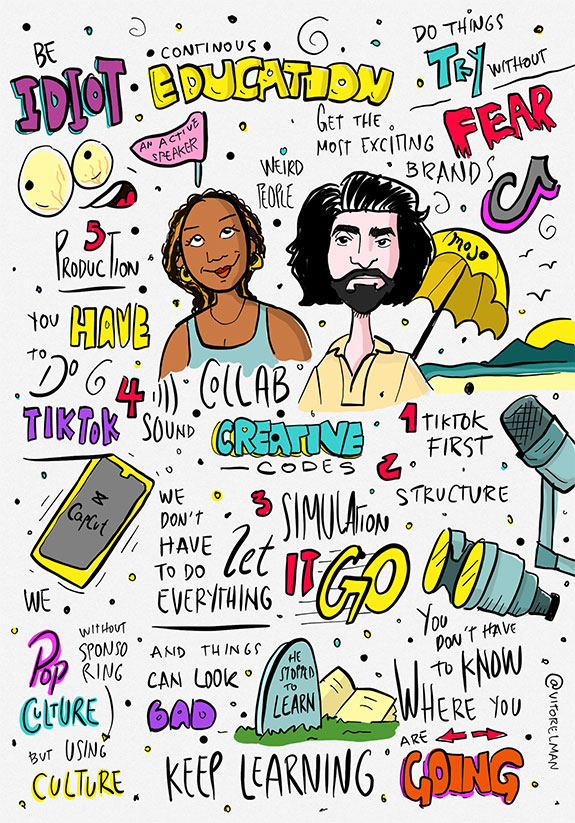 BE
IDIOT
CONTINOUS
EDUCATION
DO THINGS
TRY WITHOUT
FEAR
AN ACTIVE
SPEAKER
WEIRD
PEOPLE
GET THE
MOST EXCITING
BRANDS
5
PRODUCTION
mojo
YOU HAVE
TO DO
TIKTOK
4
SOUND
COLLAB
CREATIVE
CODES
1 TIKTOK
FIRST
2
STRUCTURE
CapCut
WE
DON'T
HAVE
TO DO
EVERYTHING
3 SIMULATION
let
IT GO
WE
POP
CULTURE
WITHOUT
SPONSO
RING
BUT USING
CULTURE
AND THINGS
CAN LOOK
BAD
HE
STOPPED
TO
LEARN
KEEP LEARNING
YOU
DON'T HAVE
TO KNOW
WHERE YOU
ARE
GOING
@VITORELMAN